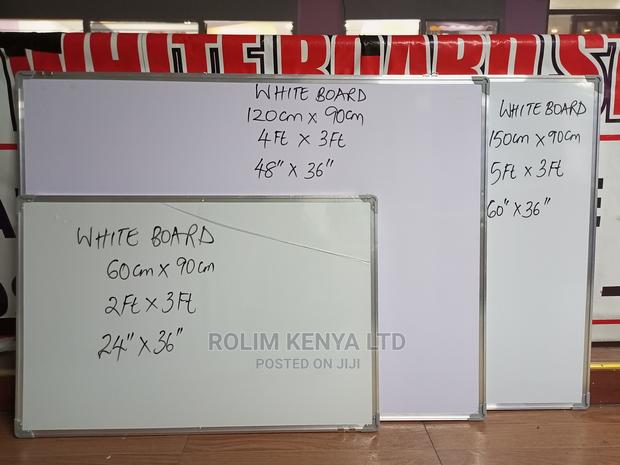 WHITEBOARDS
WHITE BOARD
120cm x 90cm
4Ft x 3Ft
48" x 36"
WHITE BOARD
150cm x 90cm
5Ft x 3Ft
60" x 36"
WHITE BOARD
60cm x 90cm
2Ft x 3Ft
24" x 36"
ROLIM KENYA LTD
POSTED ON JIJI